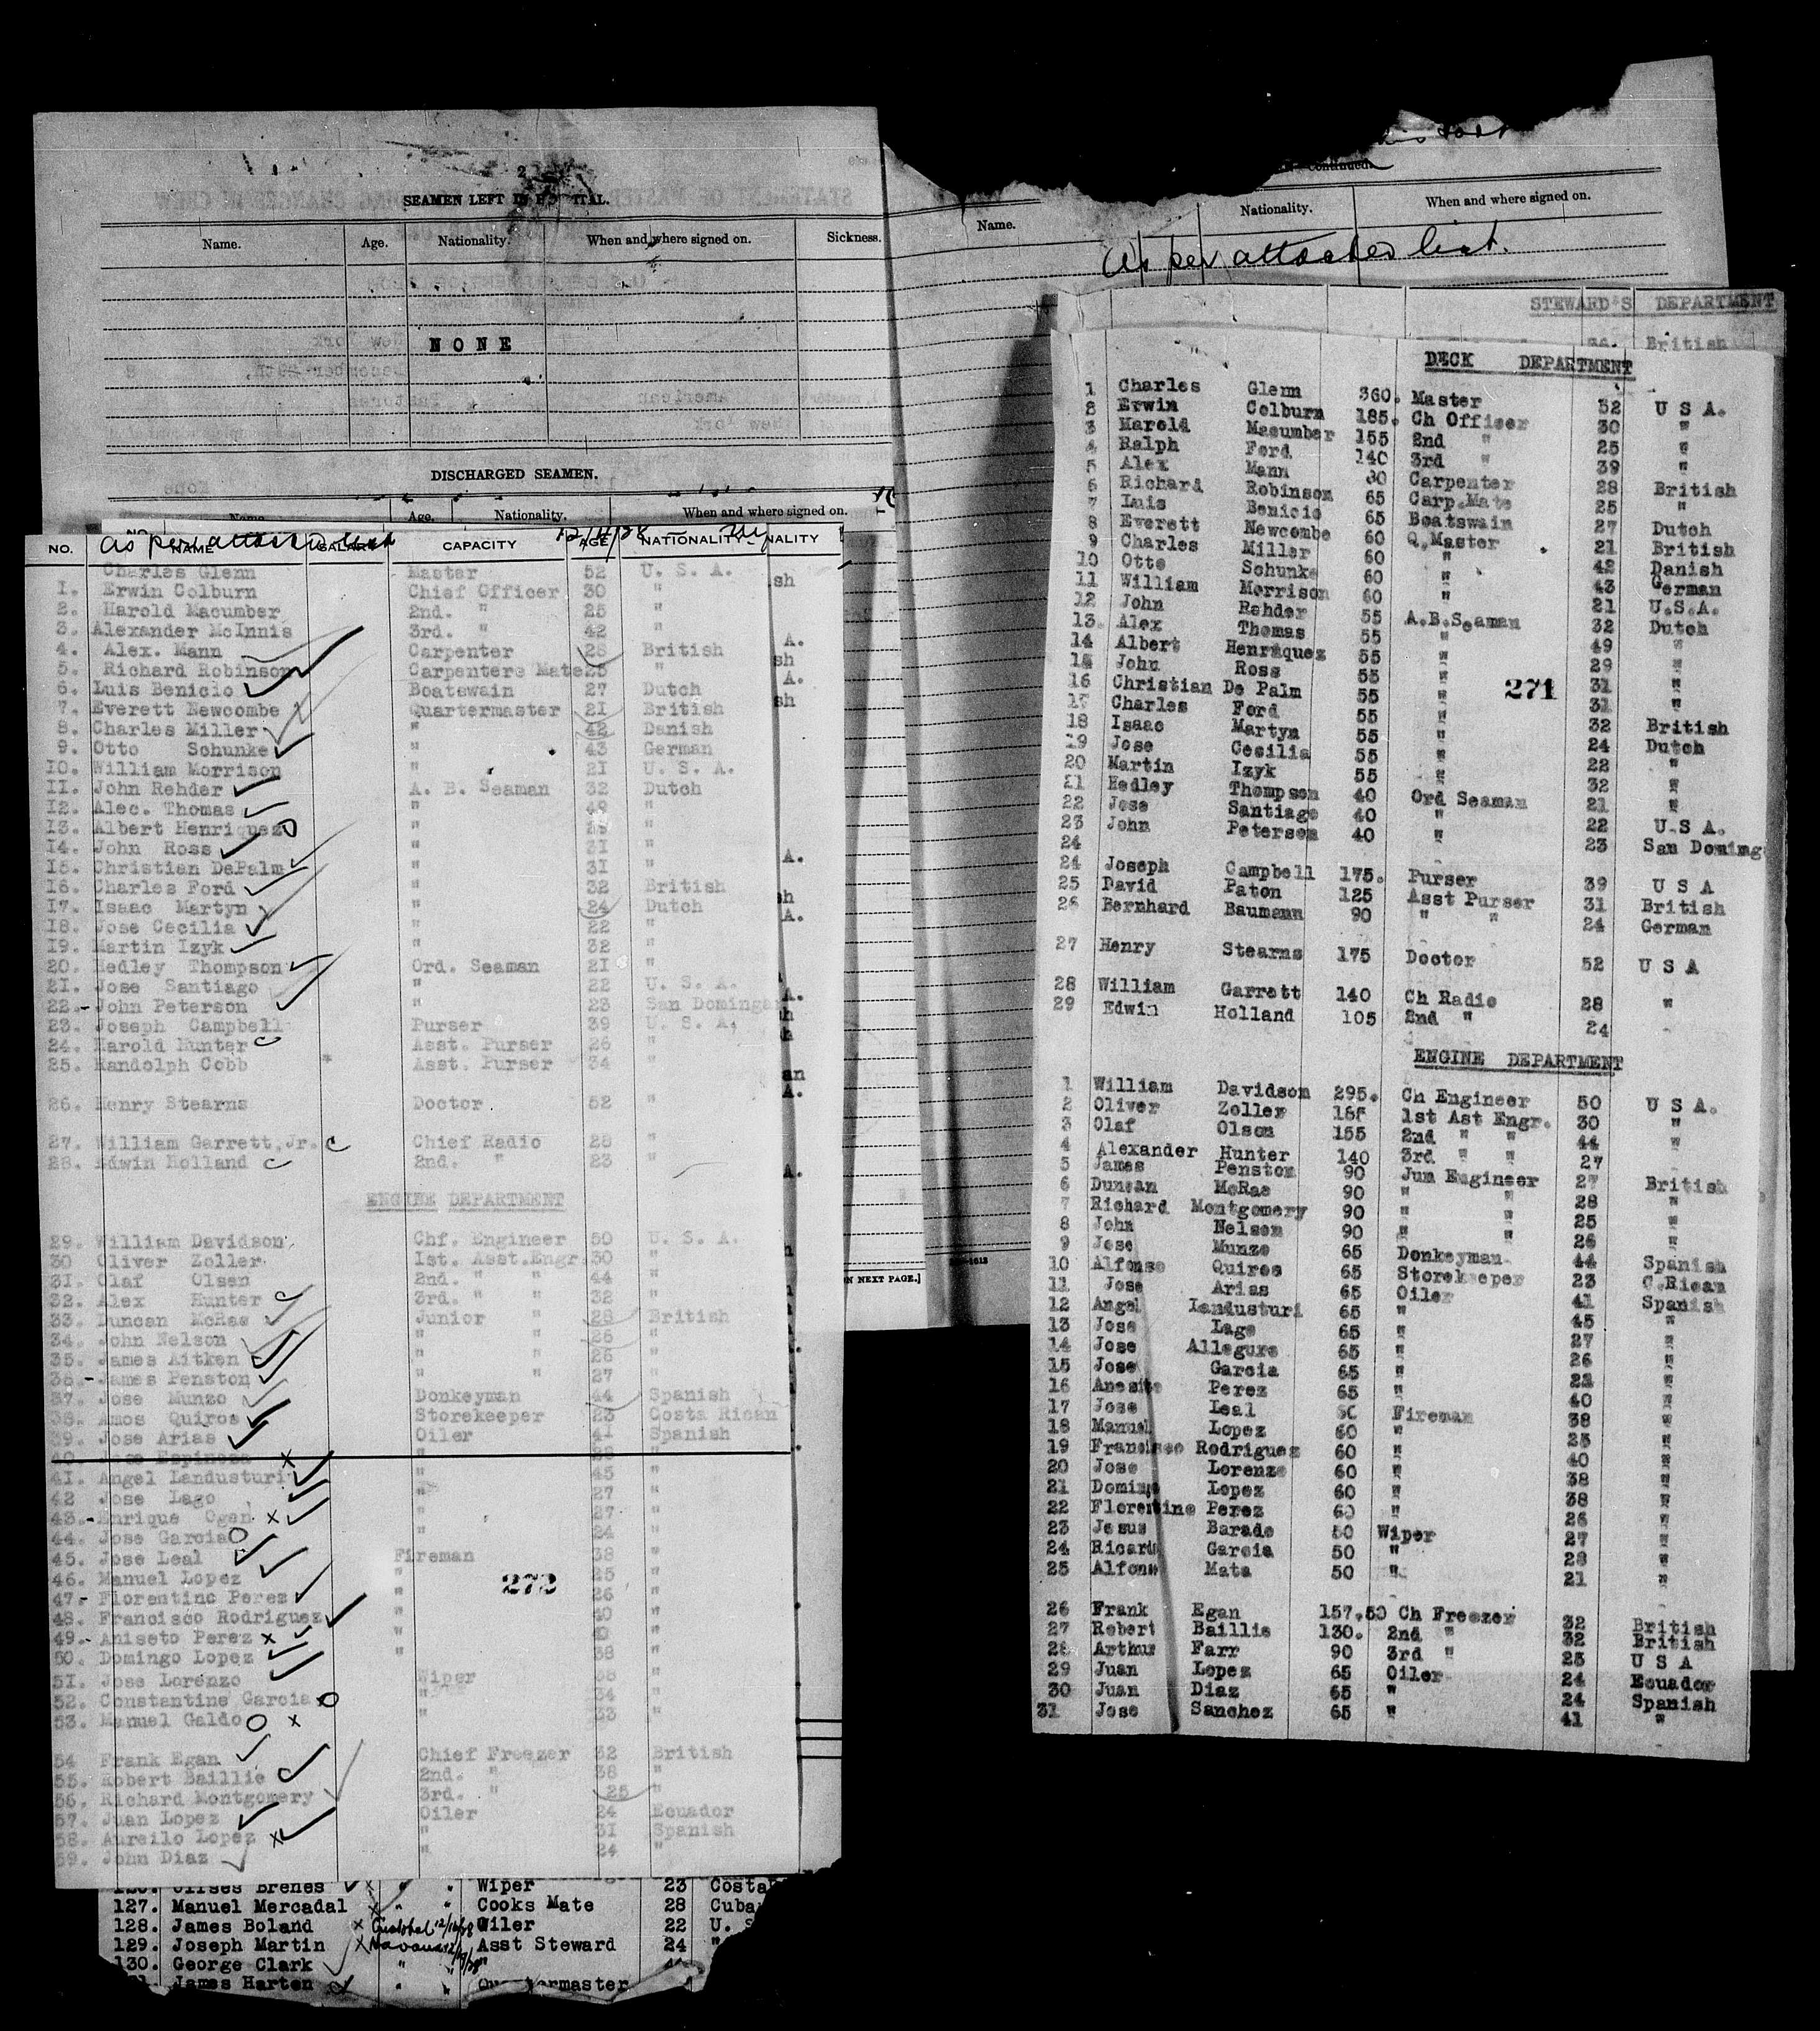 2
SEAMEN LEFT IN TAL.
Name. Age. Nationality. When and where signed on. Sickness.
NONE
DISCHARGED SEAMEN.
Name. Age. Nationality. When and where signed on.
As per attached list
NO. NAME SALARY CAPACITY AGE NATIONALITY NALITY
Charles Glenn Master 52 U. S. A.
1. Erwin Colburn Chief Officer 30 "
2. Harold Macumber 2nd. " 25 "
3. Alexander McInnis 3rd. " 42 "
4. Alex. Mann Carpenter 28 British
5. Richard Robinson Carpenters Mate 25 "
6. Luis Benicio Boatswain 27 Dutch
7. Everett Newcombe Quartermaster 21 British
8. Charles Miller " 42 Danish
9. Otto Schunke " 43 German
10. William Morrison " 21 U. S. A.
11. John Rehder A. B. Seaman 32 Dutch
12. Alec. Thomas " 49 "
13. Albert Henriquez " 29 "
14. John Ross " 31 "
15. Christian DePalm " 31 "
16. Charles Ford " 32 British
17. Isaac Martyn " 24 Dutch
18. Jose Cecilia " 22 "
19. Martin Izyk " 32 "
20. Hedley Thompson Ord. Seaman 21 "
21. Jose Santiago " 22 U. S. A.
22.- John Peterson " 23 San Domingan
23. Joseph Campbell Purser 39 U. S. A.
24. Harold Hunter Asst. Purser 26 "
25. Randolph Cobb Asst. Purser 34 "
26. Henry Stearns Doctor 52 "
27. William Garrett, Jr. Chief Radio 28 "
28. Edwin Holland 2nd. " 23 "
ENGINE DEPARTMENT
29. William Davidson Chf. Engineer 50 U. S. A.
30 Oliver Zoller 1st. Asst.Engr. 30 "
31. Olaf Olsen 2nd. " " 44 "
32. Alex Hunter 3rd. " " 32 "
33. Duncan McRae Junior " 28 British
34. John Nelson " " 26 "
35. James Aitken " " 26 "
36.- James Penston " " 27 "
37. Jose Munzo Donkeyman 44 Spanish
38. Amos Quiros Storekeeper 23 Costa Rican
39. Jose Arias Oiler 41 Spanish
40. Jose Espinosa " 28 "
41. Angel Landusturi " 45 "
42 Jose Lago " 27 "
43.- Enrique Ogan " 27 "
44. Jose Garcia " 24 "
45. Jose Leal Fireman 38 "
46. Manuel Lopez " 25 "
272
47.- Florentino Perez " 26 "
48. Francisco Rodriguez " 40 "
49.- Aniseto Perez " 40 "
50. Domingo Lopez " 38 "
51. Jose Lorenzo Wiper 38 "
52. Constantine Garcia " 34 "
53. Manuel Galdo " 33 "
54 Frank Egan Chief Freezer 32 British
55. Robert Baillie 2nd. " 38 "
56. Richard Montgomery 3rd. " 25 "
57. Juan Lopez Oiler 24 Ecuador
58. Aurelio Lopez " 31 Spanish
59. John Diaz " 24 "
Ulises Brenes " " Wiper 23 Costa
127. Manuel Mercadal " " Cooks Mate 28 Cuba
128. James Boland Cristobal 12/16/28 Oiler 22 U. S
129. Joseph Martin Havana Asst Steward 24 "
130. George Clark " " "
James Harten " " Quartermaster
Continued.
Name. Nationality. When and where signed on.
As per attached list.
ON NEXT PAGE.]
STEWARD'S DEPARTMENT
British
DECK DEPARTMENT
1 Charles Glenn 360. Master 52 U S A.
2 Erwin Colburn 185. Ch Officer 30 "
3 Harold Macumber 155 2nd " 25 "
4 Ralph Ford 140 3rd " 39 "
5 Alex Mann 80 Carpenter 28 British
6 Richard Robinson 65 Carp.Mate 25 "
7 Luis Benicio 65 Boatswain 27 Dutch
8 Everett Newcombe 60 Q.Master 21 British
9 Charles Miller 60 " 42 Danish
10 Otto Schunke 60 " 43 German
11 William Morrison 60 " 21 U.S.A.
12 John Rehder 55 A.B.Seaman 32 Dutch
13. Alex Thomas 55 " 49 "
14 Albert Henriquez 55 " 29 "
15 John Ross 55 " 31 "
271
16 Christian De Palm 55 " 31 "
17 Charles Ford 55 " 32 British
18 Isaac Martyn 55 " 24 Dutch
19 Jose Cecilia 55 " 22 "
20 Martin Izyk 55 " 32 "
21 Hedley Thompson 40 Ord Seaman 21 "
22 Jose Santiago 40 " 22 U.S A.
23 John Peterson 40 " 23 San Doming
24
24 Joseph Campbell 175. Purser 39 U S A
25 David Paton 125 Asst Purser 31 British
26 Bernhard Baumann 90 " " 24 German
27 Henry Stearns 175 Doctor 52 U S A
28 William Garrett 140 Ch Radio 28 "
29 Edwin Holland 105 2nd " 24
ENGINE DEPARTMENT
1 William Davidson 295. Ch Engineer 50 U S A.
2 Oliver Zoller 185 1st Ast Engr. 30 "
3 Olaf Olson 155 2nd " " 44 "
4 Alexander Hunter 140 3rd " " 27
5 James Penston 90 Jun Engineer 27 British
6 Duncan McRae 90 " " 28 "
7 Richard Montgomery 90 " " 25 "
8 John Nelson 90 " " 26 "
9 Jose Munzo 65 Donkeyman 44 Spanish
10 Alfonso Quiros 65 Storekeeper 23 C.Rican
11 Jose Arias 65 Oiler 41 Spanish
12 Angel Landusturi 65 " 45 "
13 Jose Lago 65 " 27 "
14 Jose Allegure 65 " 26 "
15 Jose Garcia 65 " 22 "
16 Anesito Perez 65 " 40 "
17 Jose Leal 60 Fireman 38 "
18 Manuel Lopez 60 " 25 "
19 Francisco Rodriguez 60 " 40 "
20 Jose Lorenzo 60 " 38 "
21 Domingo Lopez 60 " 38 "
22 Florentine Perez 60 " 26 "
23 Jesus Barade 50 Wiper 27 "
24 Ricardo Garcia 50 " 28 "
25 Alfonso Mata 50 " 21 "
26 Frank Egan 157.50 Ch Freezer 32 British
27 Robert Baillie 130. 2nd " 32 British
28 Arthur Farr 90 3rd " 25 U S A
29 Juan Lopez 65 Oiler 24 Ecuador
30 Juan Diaz 65 " 24 Spanish
31 Jose Sanchez 65 " 41 "